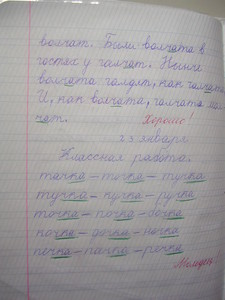 волчат. Были волчата в
гостях у галчат. Нынче
волчата галдят, как галчата.
И, как волчата, галчата мол-
чат.
Хорошо!
23 января
Классная работа.
тачка – точка – тучка
тучка – кучка – ручка
точка – почка – бочка
ночка – дочка – почка
печка – пачка – речка
Молодец